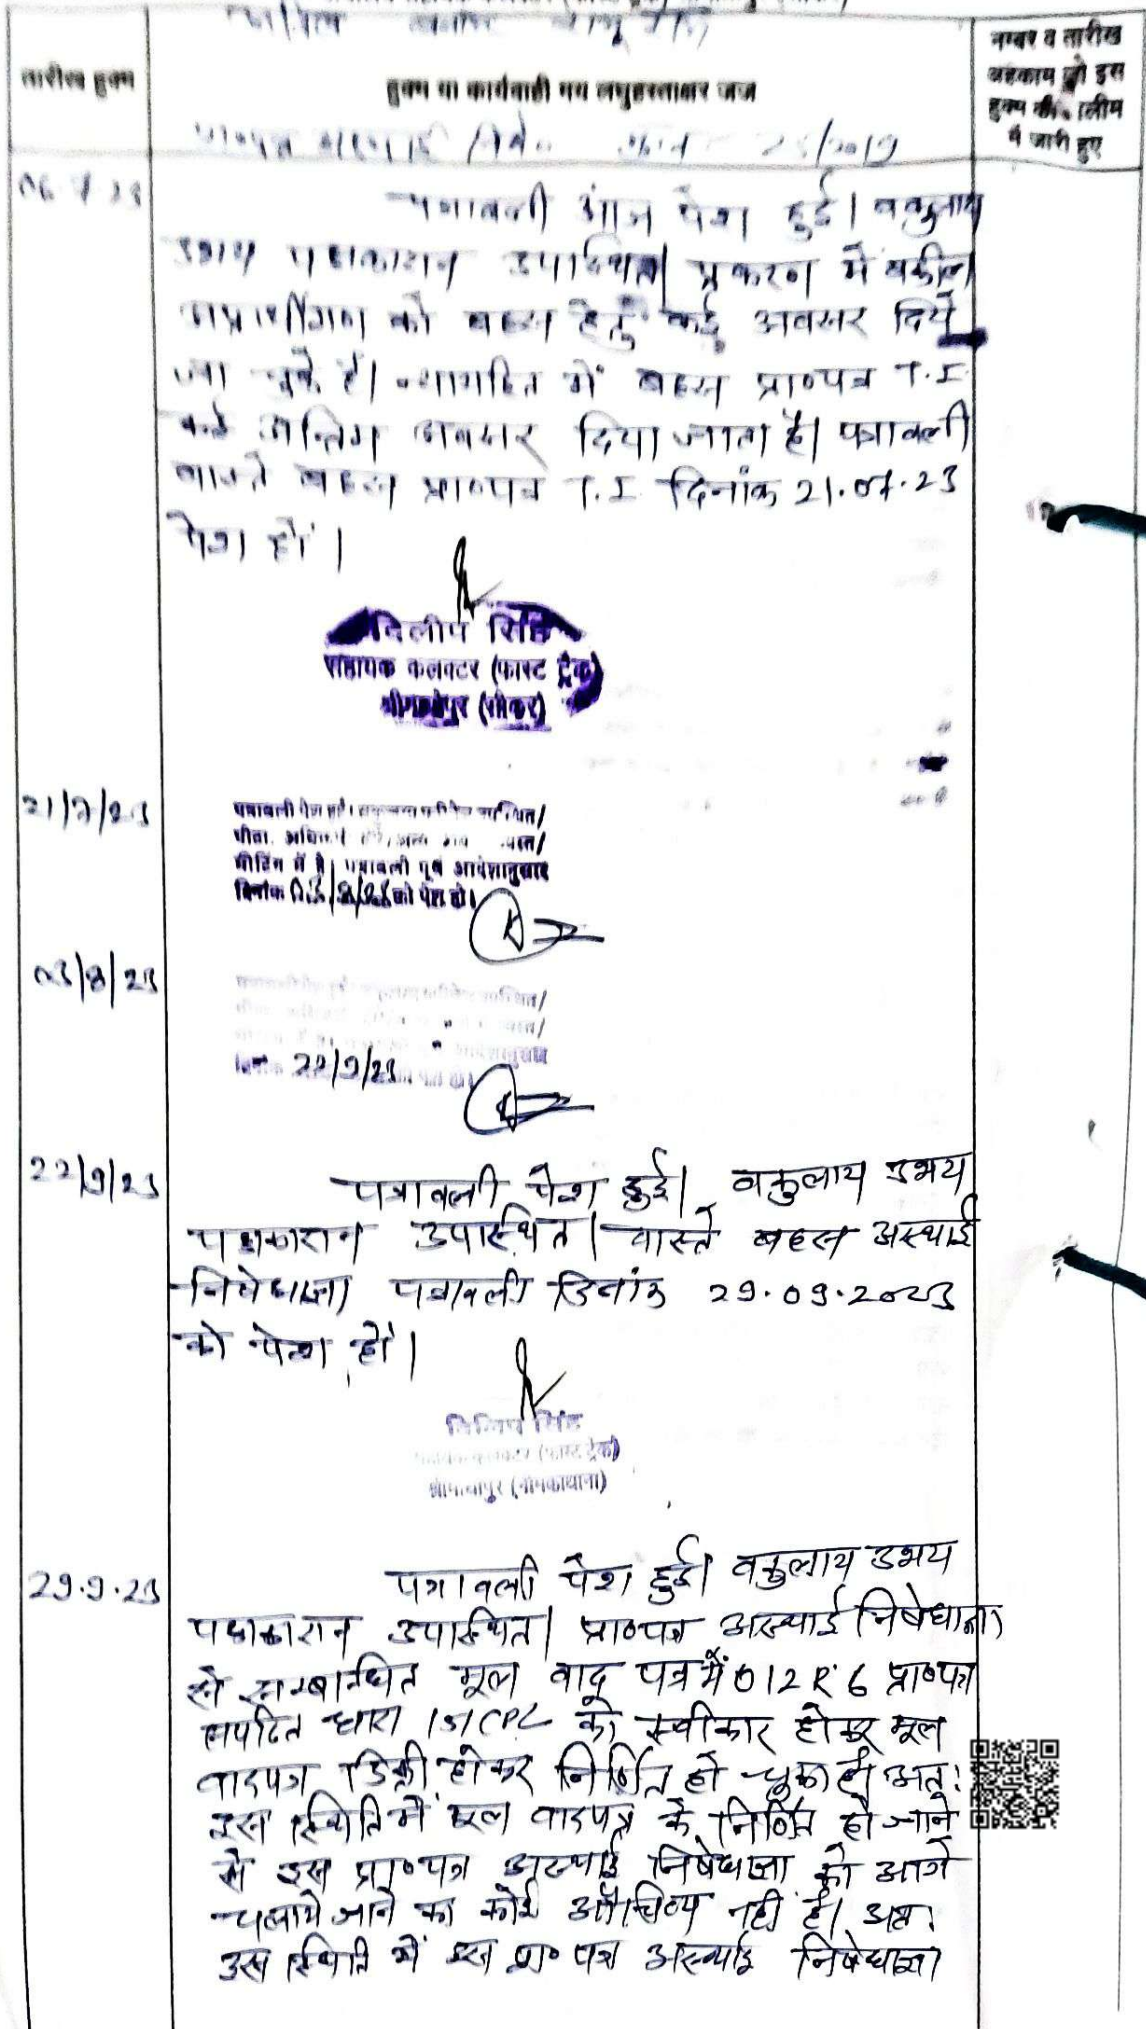 तारीख हुक्म
हुक्म या कार्यवाही मय लघुहस्ताक्षर जज
नम्बर व तारीख
अहकाम जो इस
हुक्म की तामील
में जारी हुए
25/2019
पत्रावली आज पेश हुई। वकुलाय
उभय पक्षकारान उपस्थित। प्रकरण में वकील
अप्रार्थीगण को बहस हेतु कई अवसर दिये
जा चुके हैं। न्यायहित में बहस प्रा०पत्र T.I.
अन्तिम अवसर दिया जाता है। पत्रावली
वास्ते बहस प्रा०पत्र T.I. दिनांक 21.07.23
पेश हो।
दिलीप सिंह
सहायक कलक्टर (फास्ट ट्रेक)
श्रीमाधोपुर (सीकर)
21/7/23
मीटिंग में है। पत्रावली पूर्व आदेशानुसार
दिनांक 03/8/23 को पेश हो।
03/8/23
22/9/23
22/9/23
पत्रावली पेश हुई। वकुलाय उभय
पक्षकारान उपस्थित। वास्ते बहस अस्थाई
निषेधाज्ञा पत्रावली दिनांक 29.09.2023
को पेश हो।
दिलीप सिंह
सहायक कलक्टर (फास्ट ट्रेक)
श्रीमाधोपुर (नीमकाथाना)
29.9.23
पत्रावली पेश हुई। वकुलाय उभय
पक्षकारान उपस्थित। प्रा०पत्र अस्थाई निषेधाज्ञा
से सम्बन्धित मूल वाद पत्र में O12 R.6 प्रा०पत्र
सपठित धारा 151 CPC को स्वीकार होकर मूल
वादपत्र डिक्री होकर निर्णित हो चुका है। अतः
इस स्थिति में मूल वादपत्र के निर्णित हो जाने
से इस प्रा०पत्र अस्थाई निषेधाज्ञा को आगे
चलाये जाने का कोई औचित्य नहीं है। अतः
उस स्थिति में इस प्रा० पत्र अस्थाई निषेधाज्ञा